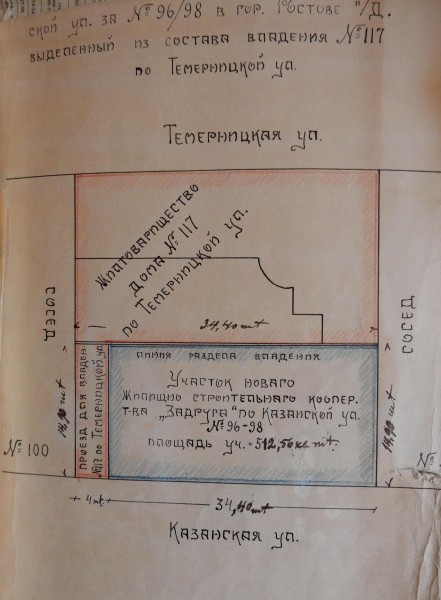 ской ул. за № 96/98 в гор. Ростове н/Д.
выделенный из состава владения № 117
по Темерницкой ул.
Темерницкая ул.
Жилтоварищество
Дома № 117
по Темерницкой ул.
34,40 mt
СОСЕД
СОСЕД
линия раздела владения
Участок новаго
Жилищно строительнаго коопер.
т-ва „Задруга" по Казанской ул.
№ 96-98
площадь уч.=512,56 кв. mt.
ПРОЕЗД ДЛЯ ВЛАДЕН.
№ 117 по Темерницкой ул.
14,90 mt
14.90 mt
№ 100
№
4 mt.
34,40 mt
Казанская ул.